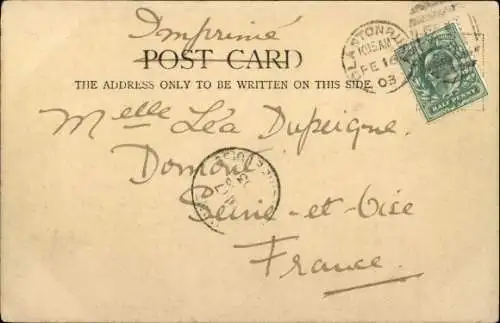 Imprimé
POST CARD
THE ADDRESS ONLY TO BE WRITTEN ON THIS SIDE.
GLASTONBURY
10.15AM
FE 16
03
HALF PENNY
Melle Léa Dupeigne.
Domont
Seine-et-Oise
France.